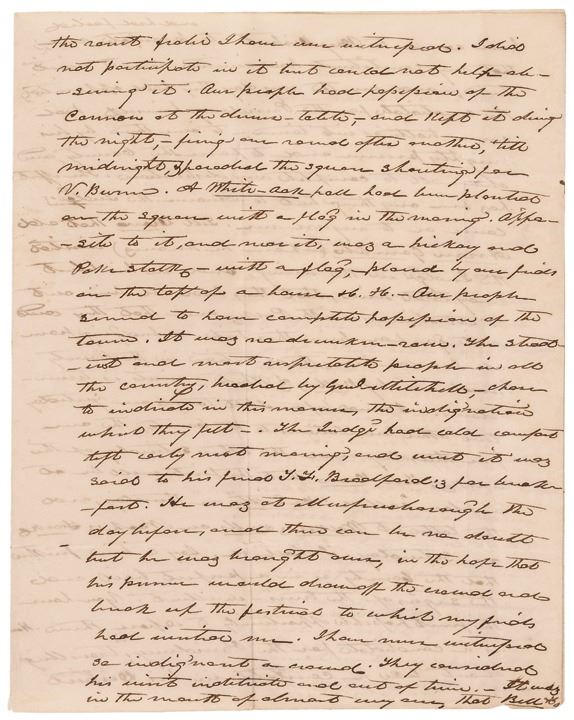 the                  I have ever witnessed. I did
not participate in it but could not help ob-
-serving it. Our people had possession of the
Cannon at the dinner-table, and kept it during
the night, - firing one round after another, till
midnight, & paraded the square shouting for
V. Buren. A White-oak pole had been planted
on the square with a flag in the morning. Oppo-
-site to it, and near it, was a hickory and
Poke Stalk, - with a flag, - placed by our friends
on the top of a house &. &. - Our people
seemed to have complete possession of the
town. It was no drunken-row. The
and most respectable people in all
the country, headed by Genl. Mitchell, - chose
to indicate in this manner, the indignation
which they felt -. The Judge had cold comfort
left early next morning, and went it was
said to his friend T. F. Bradford's for break-
-fast. He was at Murfreesborough the
day before, and there can be no doubt
but he was brought over, in the hope that
his presence would draw off the crowd and
break up the festival to which my friends
had invited me. I have never witnessed
so indignant a crowd. They considered
his visit indelicate and out of time. - It was
in the mouth of almost every one, that Bell &c